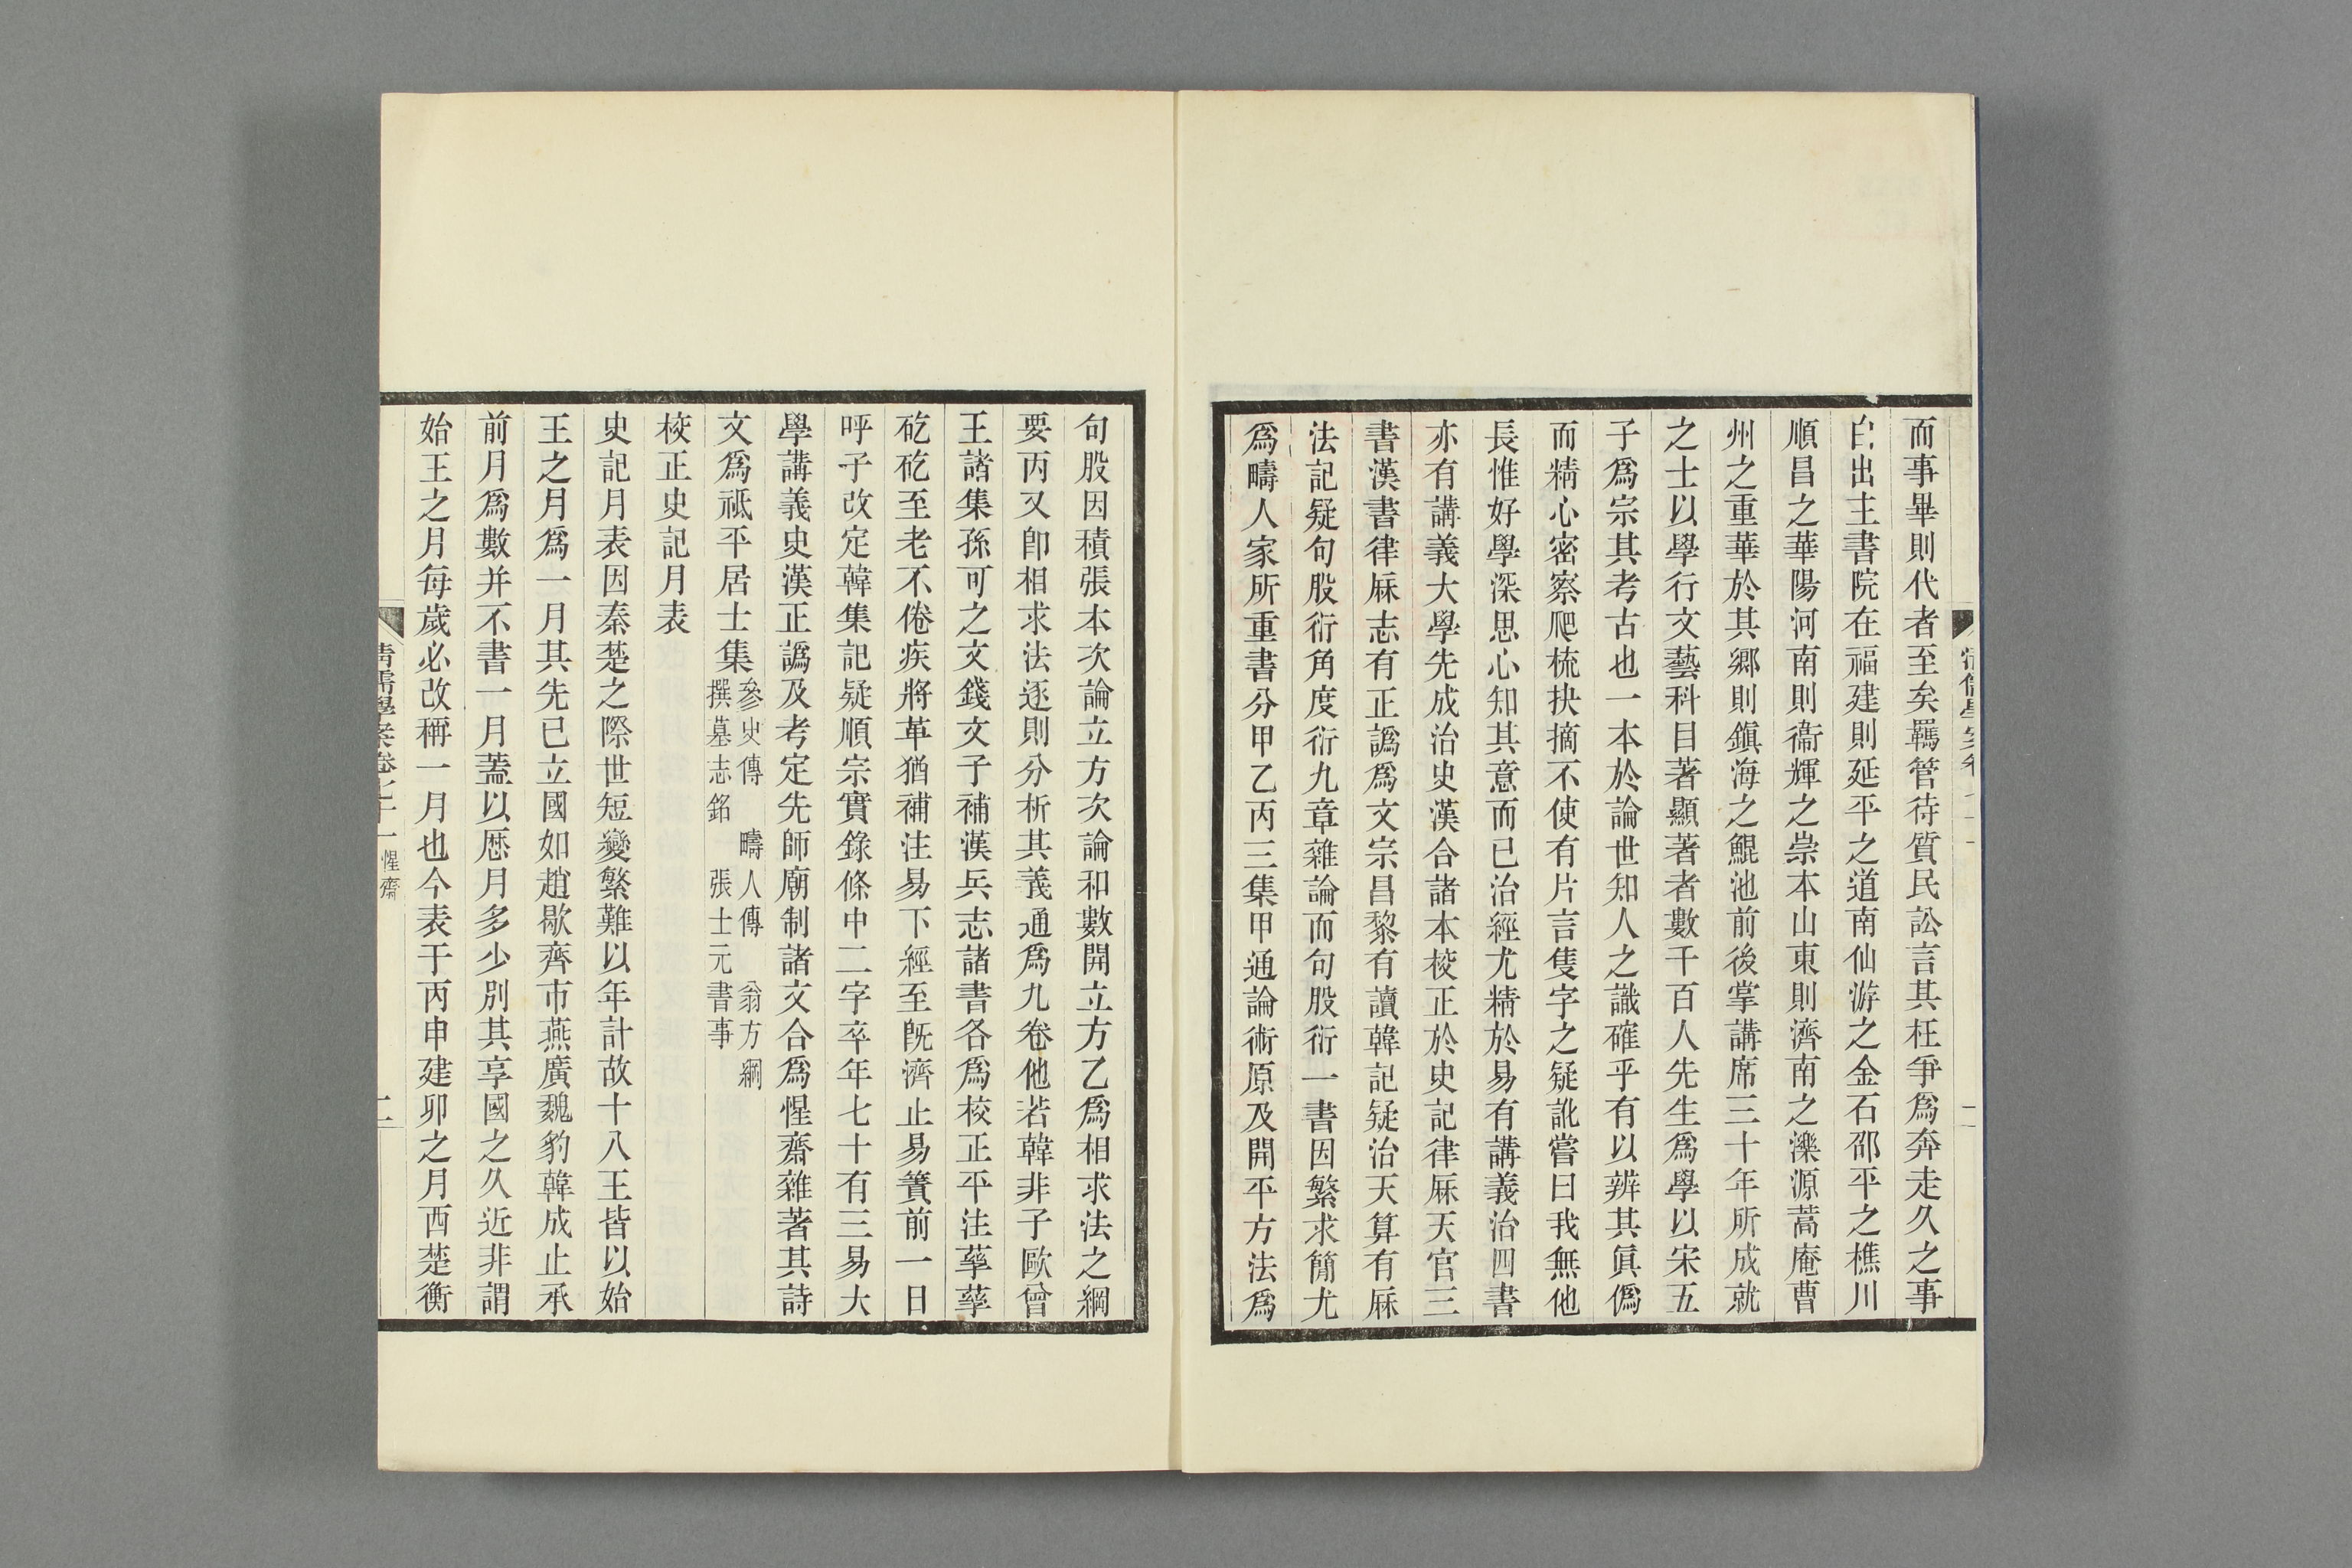 而事畢則代者至矣羈管待質民訟言其枉爭爲奔走久之事
白出主書院在福建則延平之道南仙游之金石邵平之樵川
順昌之華陽河南則衞輝之崇本山東則濟南之濼源蒿庵曹
州之重華於其鄉則鎭海之鯤池前後掌講席三十年所成就
之士以學行文藝科目著顯著者數千百人先生爲學以宋五
子爲宗其考古也一本於論世知人之識確乎有以辨其眞僞
而精心密察爬梳抉摘不使有片言隻字之疑訛嘗曰我無他
長惟好學深思心知其意而已治經尤精於易有講義治四書
亦有講義大學先成治史漢合諸本校正於史記律厤天官三
書漢書律厤志有正譌爲文宗昌黎有讀韓記疑治天算有厤
法記疑句股衍角度衍九章雜論而句股衍一書因繁求簡尤
爲疇人家所重書分甲乙丙三集甲通論術原及開平方法爲
句股因積張本次論立方次論和數開立方乙爲相求法之綱
要丙又卽相求法逐則分析其義通爲九卷他若韓非子歐曾
王諸集孫可之文錢文子補漢兵志諸書各爲校正平注孳孳
矻矻至老不倦疾將革猶補注易下經至旣濟止易簀前一日
呼子改定韓集記疑順宗實錄條中二字卒年七十有三易大
學講義史漢正譌及考定先師廟制諸文合爲惺齋雜著其詩
文爲祗平居士集參史傳 疇人傳 翁方綱撰墓志銘 張士元書事
校正史記月表
史記月表因秦楚之際世短變繁難以年計故十八王皆以始
王之月爲一月其先已立國如趙歇齊市燕廣魏豹韓成止承
前月爲數并不書一月蓋以厯月多少別其享國之久近非謂
始王之月每歲必改稱一月也今表于丙申建卯之月西楚衡
清儒學案卷七十一 惺齋